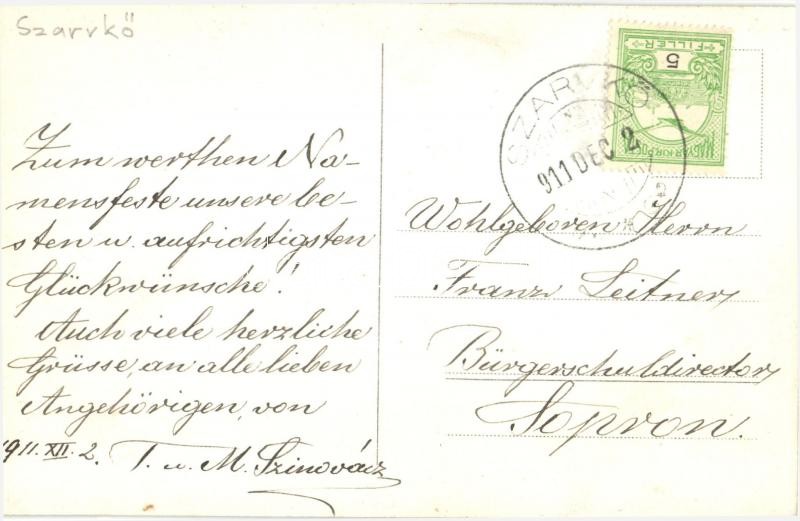 Szarvkő
Zum werthen Na-
mensfeste unsere be-
sten u. aufrichtigsten
Glückwünsche!
Auch viele herzliche
Grüsse, an alle lieben
Angehörigen, von
1911. XII. 2. T. u. M. Szinovácz
SZARVKŐ
911 DEC 2
FILLÉR
5
MAGYAR KIR. POSTA
Wohlgeboren Herrn
Franz Leitner
Bürgerschuldirector
Sopron.